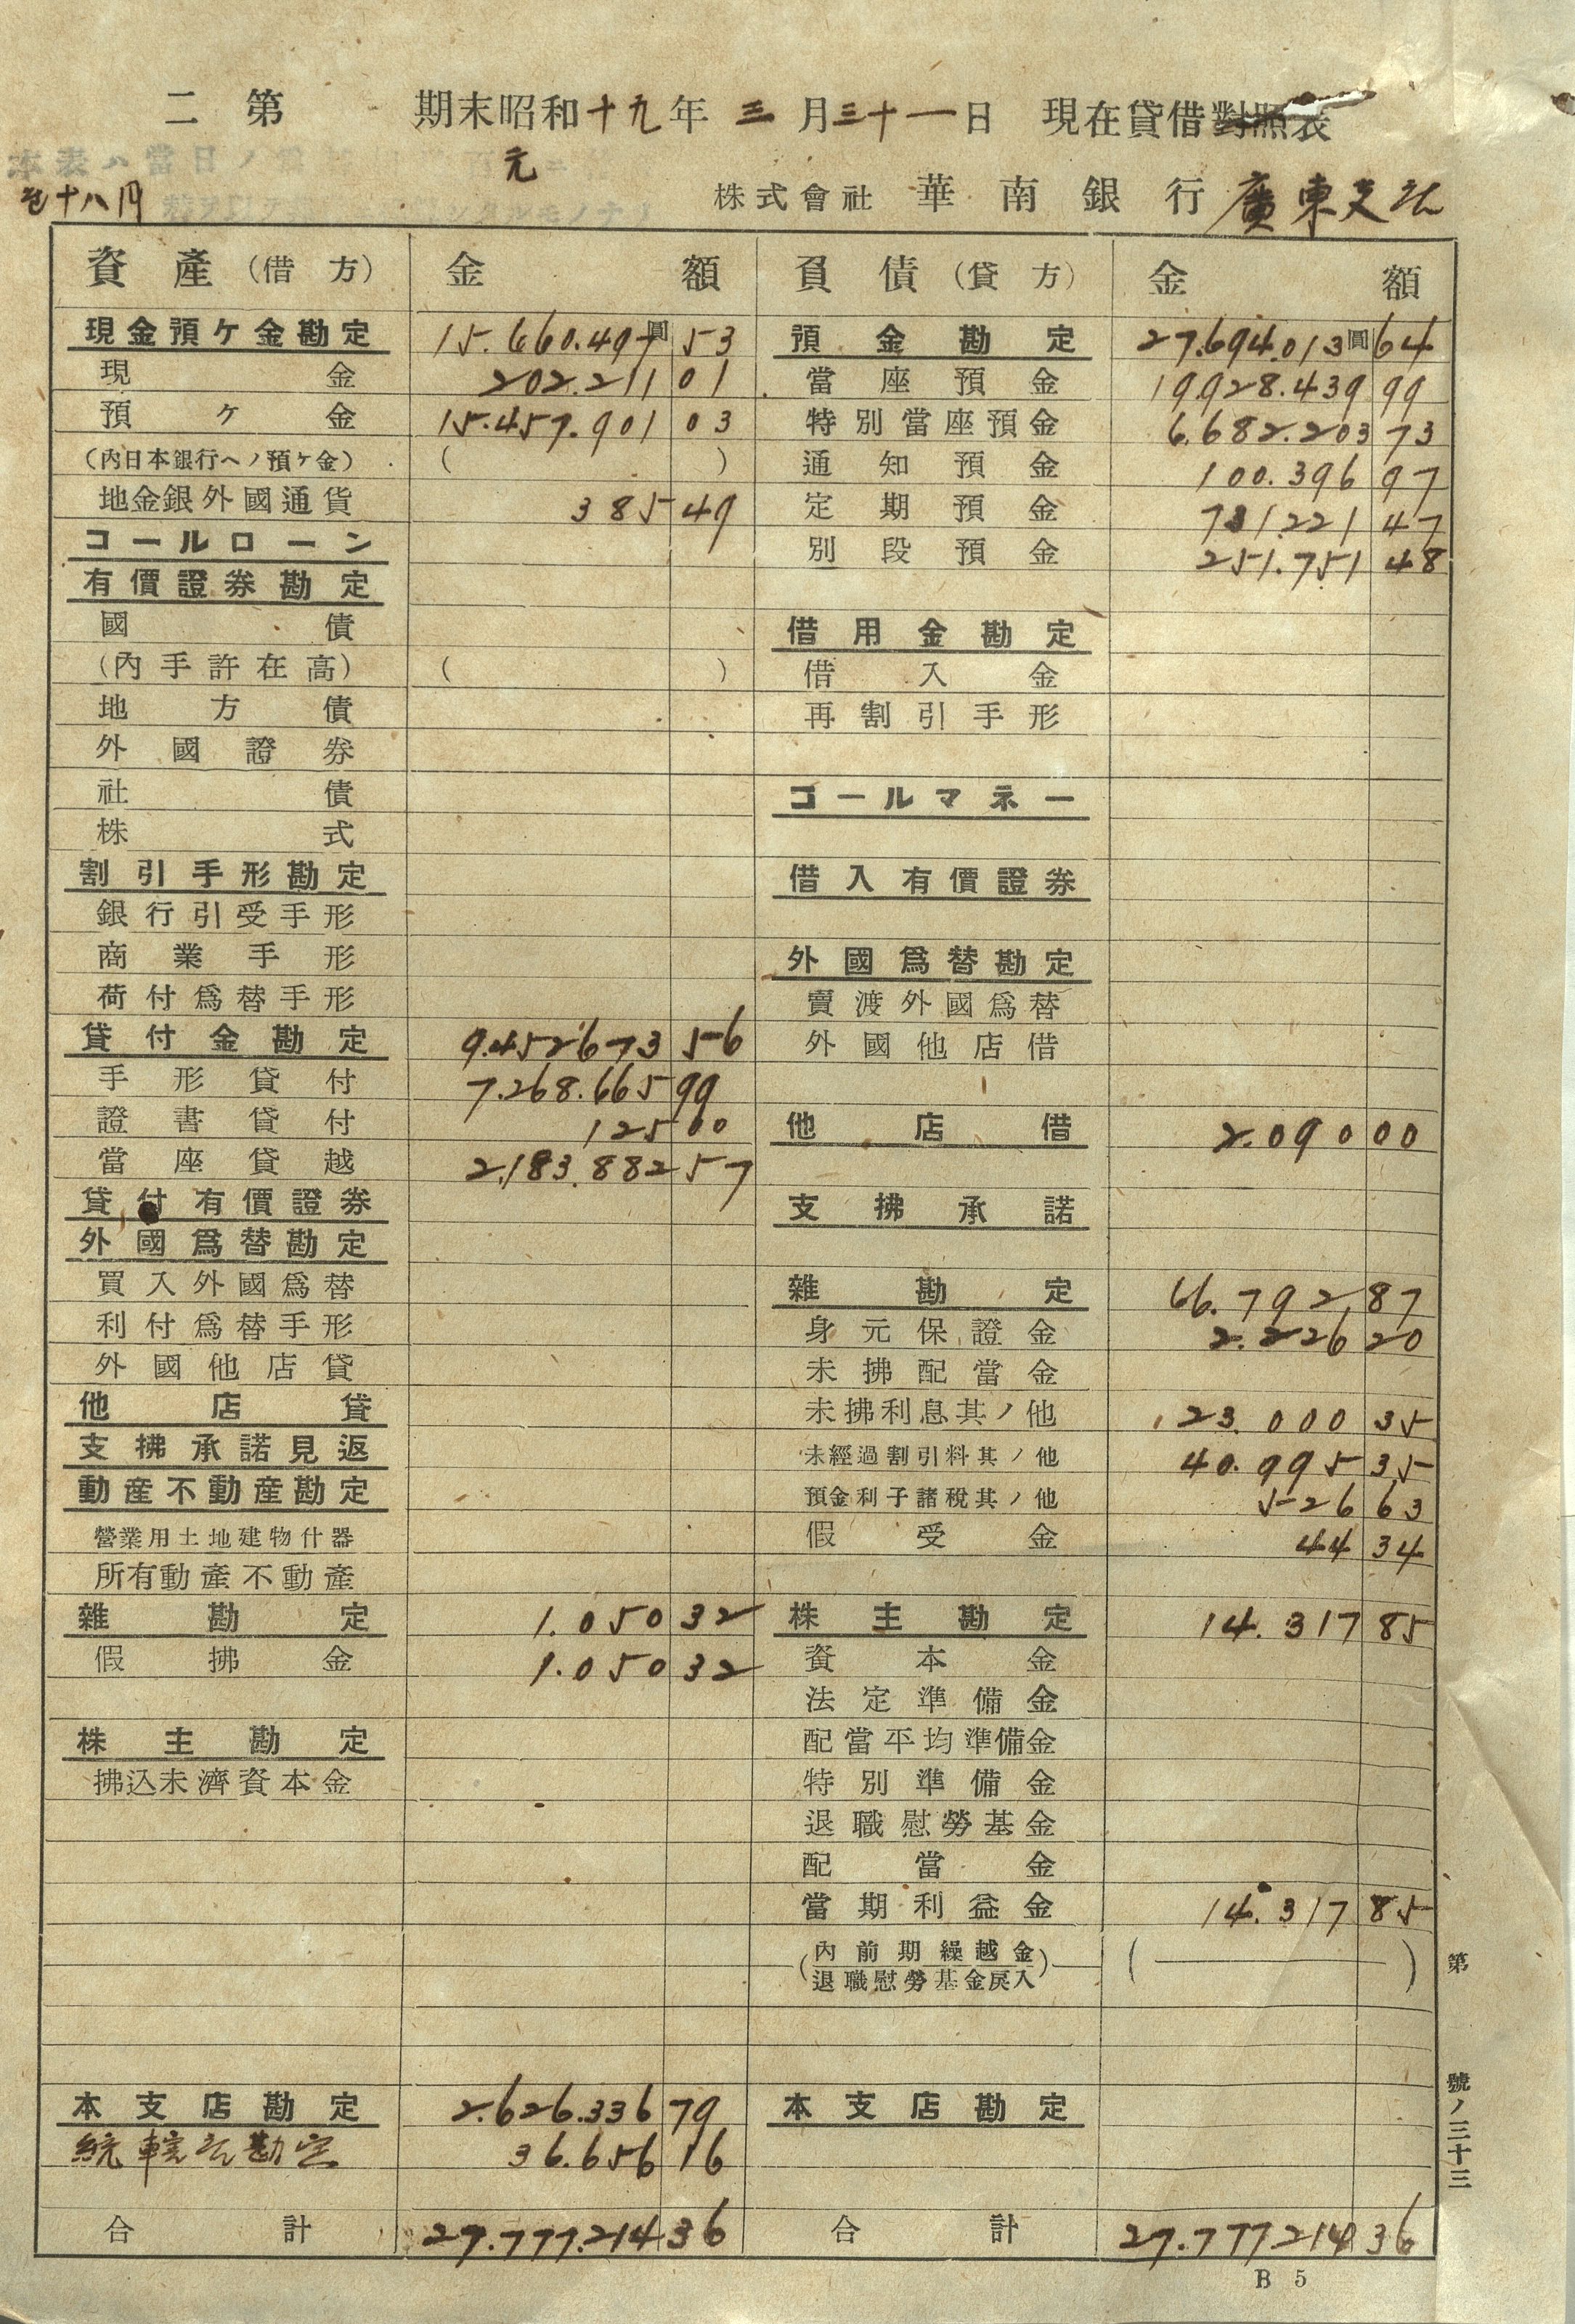 二第 期末昭和十九年三月三十一日 現在貸借對照表
元
本表ハ當日ノ
十八円
株式會社 華南銀行 廣東支店
資產(借方) 金額 負債(貸方) 金額
現金預ケ金勘定 15.660.497圓53 預金勘定 27.694.013圓64
現金 202.211 01 當座預金 19.928.439 99
預ケ金 15.457.901 03 特別當座預金 6.682.203 73
(內日本銀行ヘノ預ケ金) ( ) 通知預金 100.396 97
地金銀外國通貨 385 49 定期預金 731.221 47
コールローン 別段預金 251.751 48
有價證券勘定
國債 借用金勘定
(內手許在高) ( ) 借入金
地方債 再割引手形
外國證券
社債 コールマネー
株式
割引手形勘定 借入有價證券
銀行引受手形
商業手形 外國爲替勘定
荷付爲替手形 賣渡外國爲替
貸付金勘定 9.452.673 56 外國他店借
手形貸付 7.268.665 99
證書貸付 125 00 他店借 2.090 00
當座貸越 2.183.882 57
貸付有價證券 支拂承諾
外國爲替勘定
買入外國爲替 雜勘定 66.792 87
利付爲替手形 身元保證金 2.226 20
外國他店貸 未拂配當金
他店貸 未拂利息其ノ他 23.000 35
支拂承諾見返 未經過割引料其ノ他 40.995 35
動產不動產勘定 預金利子諸稅其ノ他 526 63
營業用土地建物什器 假受金 44 34
所有動產不動產
雜勘定 1.050 32 株主勘定 14.317 85
假拂金 1.050 32 資本金
法定準備金
株主勘定 配當平均準備金
拂込未濟資本金 特別準備金
退職慰勞基金
配當金
當期利益金 14.317 85
(內前期繰越金 ( )
退職慰勞基金戾入)
本支店勘定 2.626.336 79 本支店勘定
統轄店勘定 36.656 16
合計 27.777.214 36 合計 27.777.214 36
第 號ノ三十三
B5